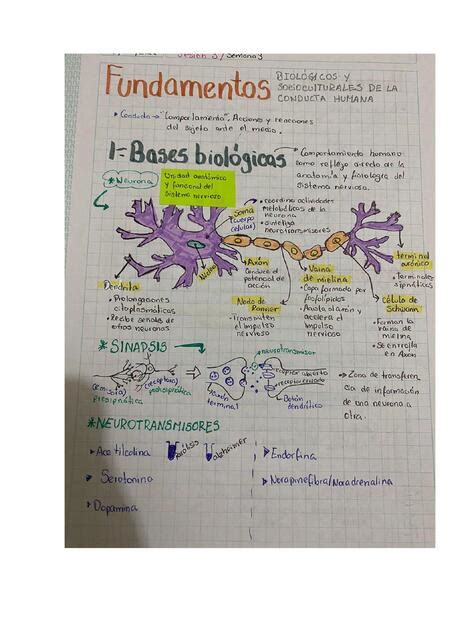 Sesión 3/Semana 3
Fundamentos BIOLÓGICOS Y
SOCIOCULTURALES DE LA
CONDUCTA HUMANA
Conducta → "Comportamiento". Acciones y reacciones
del sujeto ante el medio.
1= Bases biológicas
Comportamiento humano
como reflejo directo de la
anatomía y fisiología del
sistema nervioso.
* Neurona
Unidad anatómica
y funcional del
sistema nervioso
Soma
(cuerpo
celular)
• coordina actividades
metabólicas de la
neurona
• sintetiza
neurotransmisores
Núcleo
Dendrita
• Prolongaciones
citoplasmáticas
• Recibe señales de
otras neuronas
• Axón
Conduce el
potencial de
acción
Nodo de
Ranvier
- Transmiten
el impulso
nervioso
Vaina
de mielina
• Capa formada por
fosfolípidos
• Aísla al axón y
acelera el
impulso
nervioso
terminal
axónico
• Terminales
sipnáticas
Célula de
Schwann
• Forman la
vaina de
mielina
• Se enrolla
en Axón
* SINAPSIS
(emisora)
presipnática
(receptora)
postsipnática
neurotransmisor
receptor abierto
receptor cerrado
Axón
terminal
Botón
dendrítico
→ Zona de transferen
cia de información
de una neurona a
otra.
*NEUROTRANSMISORES
Acetilcolina
parálisis
alzheimer
Serotonina
Dopamina
Endorfina
Norapinefibra/Noradrenalina